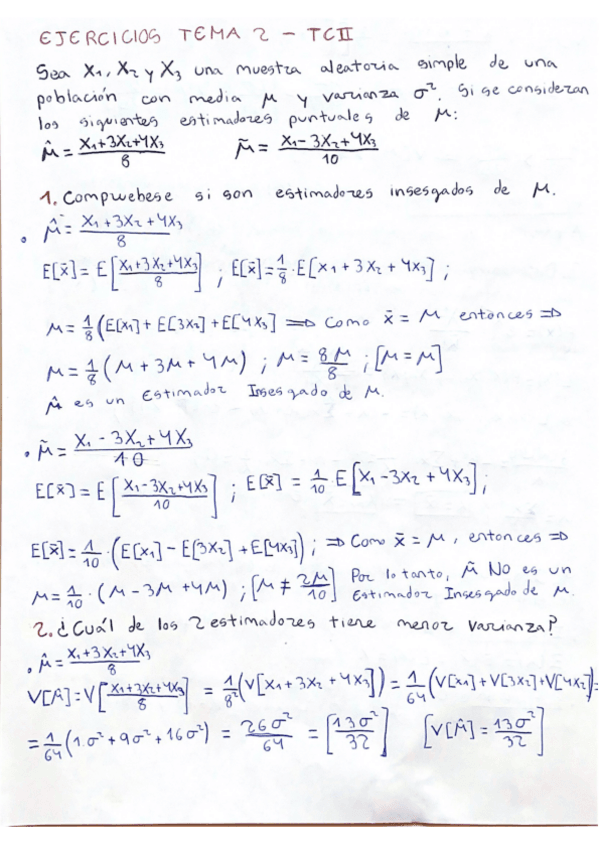 EJERCICIOS TEMA 2 - TCII
Sea X₁, X₂ y X₃ una muestra aleatoria simple de una
población con media μ y varianza σ². Si se consideran
los siguientes estimadores puntuales de μ:
μ̂ = (X₁+3X₂+4X₃)/8   μ̃ = (X₁-3X₂+4X₃)/10
1. Compruebese si son estimadores insesgados de μ.
• μ̂ = (X₁+3X₂+4X₃)/8
E[x̄] = E[(X₁+3X₂+4X₃)/8] ; E[x̄] = 1/8 · E[X₁+3X₂+4X₃] ;
μ = 1/8 (E[X₁] + E[3X₂] + E[4X₃] ⇒ Como x̄ = μ entonces ⇒
μ = 1/8 (μ + 3μ + 4μ) ; μ = 8μ/8 ; [μ = μ]
μ̂ es un Estimador Insesgado de μ.
• μ̃ = (X₁ - 3X₂ + 4X₃)/10
E[x̄] = E[(X₁-3X₂+4X₃)/10] ; E[x̄] = 1/10 · E[X₁-3X₂+4X₃] ;
E[x̄] = 1/10 · (E[X₁] - E[3X₂] + E[4X₃]) ; ⇒ Como x̄ = μ, entonces ⇒
μ = 1/10 · (μ - 3μ + 4μ) ; [μ ≠ 2μ/10] Por lo tanto, μ̃ NO es un
Estimador Insesgado de μ.
2. ¿Cuál de los 2 estimadores tiene menor varianza?
• μ̂ = (X₁+3X₂+4X₃)/8
V[μ̂] = V[(X₁+3X₂+4X₃)/8] = 1/8² (V[X₁+3X₂+4X₃]) = 1/64 (V[X₁]+V[3X₂]+V[4X₃]) =
= 1/64 (1·σ² + 9σ² + 16σ²) = 26σ²/64 = [13σ²/32]   [V[μ̂] = 13σ²/32]